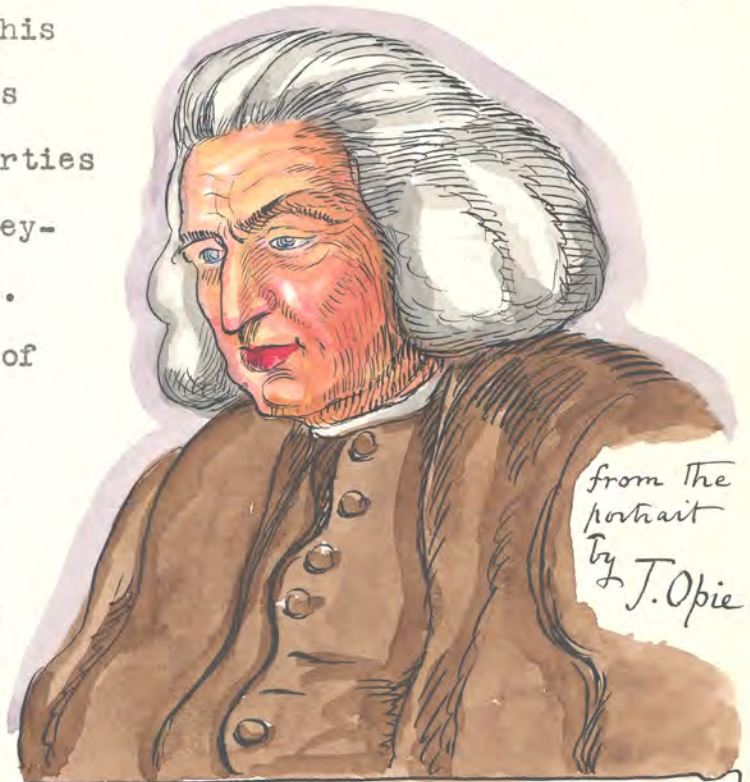 his
s
rties
ey-
.
of
from the
portrait
by
J. Opie